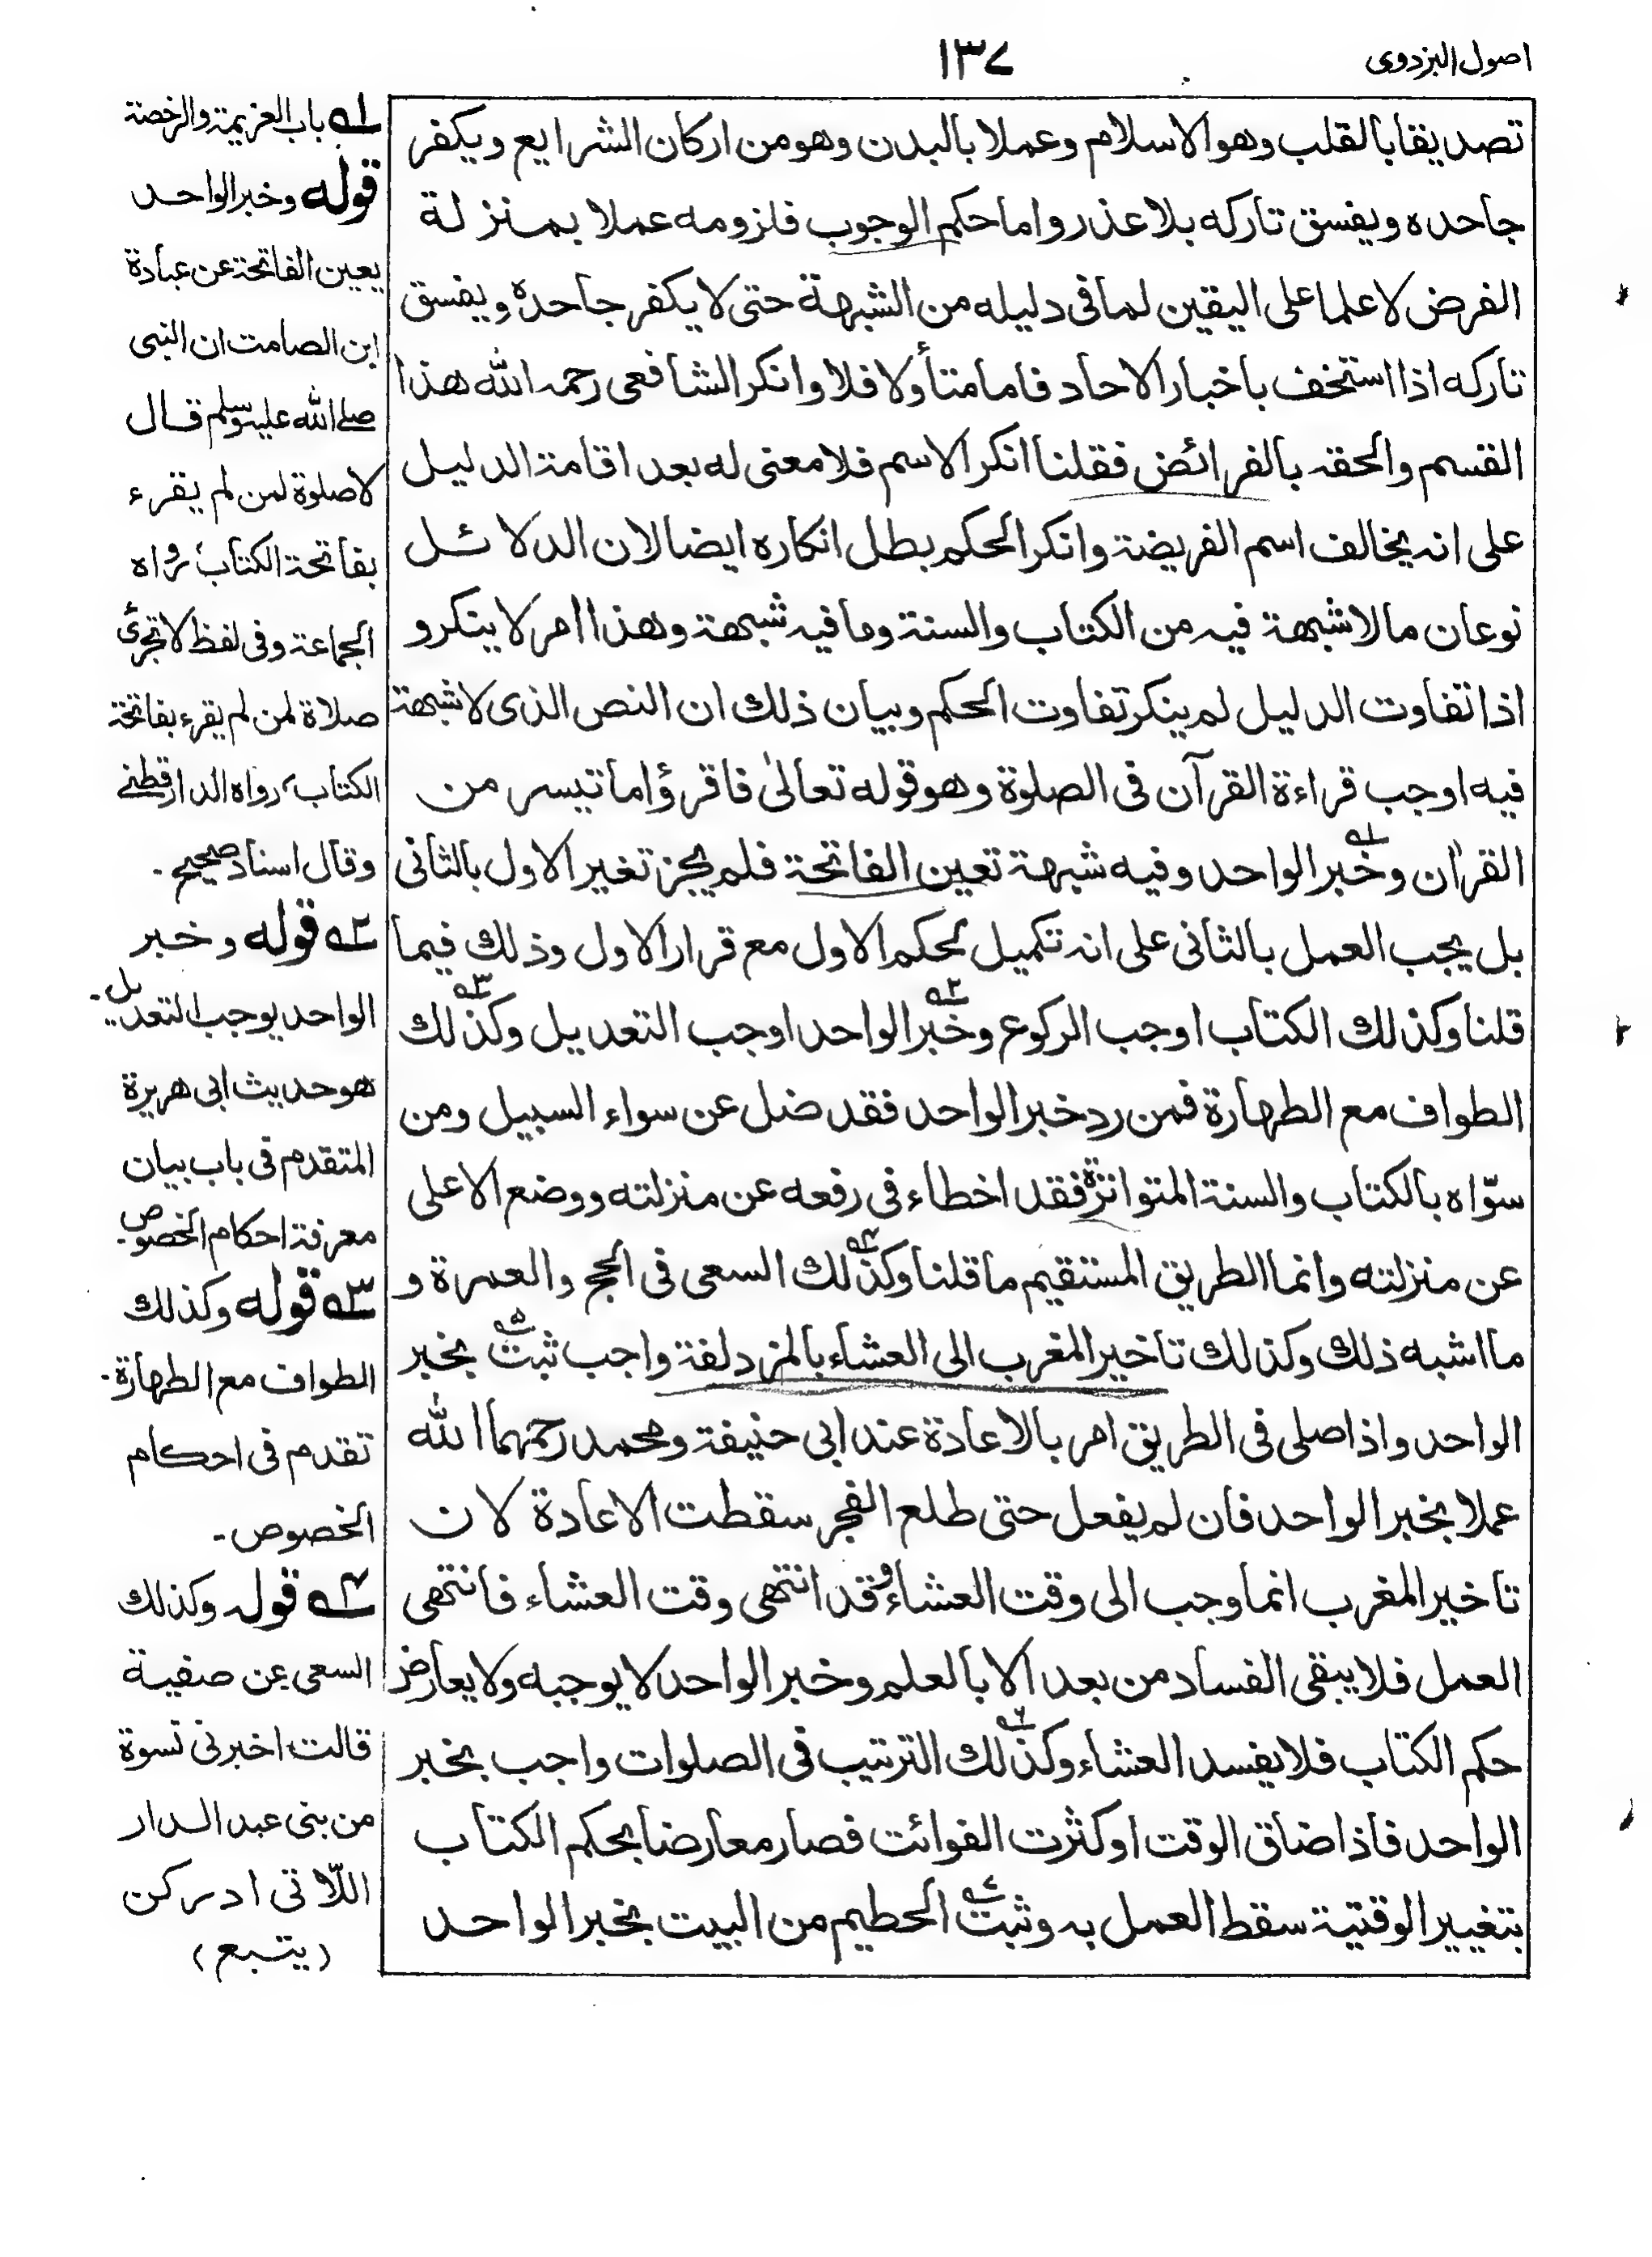 اصول البزدوی
١٣٧
تصدیقا بالقلب وهو الاسلام وعملا بالبدن وهو من ارکان الشرایع ویکفر
جاحده ویفسق تارکه بلا عذر واما حکم الوجوب فلزومه عملا بمنزلة
الفرض لا علما علی الیقین لما فی دلیله من الشبهة حتی لا یکفر جاحده ویفسق
تارکه اذا استخف باخبار الاحاد فاما متأولا فلا وانکر الشافعی رحمه الله هذا
القسم والحقه بالفرائض فقلنا انکر الاسم فلا معنی له بعد اقامة الدلیل
علی انه یخالف اسم الفریضة وانکر الحکم بطل انکاره ایضا لان الدلائل
نوعان ما لا شبهة فیه من الکتاب والسنة وما فیه شبهة وهذا امر لا ینکر و
اذا تفاوت الدلیل لم ینکر تفاوت الحکم وبیان ذلك ان النص الذی لا شبهة
فیه اوجب قراءة القرآن فی الصلوة وهو قوله تعالیٰ فاقرؤا ما تیسر من
القرٰان وخبر الواحد وفیه شبهة تعین الفاتحة فلم یجز تغیر الاول بالثانی
بل یجب العمل بالثانی علی انه تکمیل لحکم الاول مع قرار الاول وذلك فیما
قلنا وکذلك الکتاب اوجب الرکوع وخبر الواحد اوجب التعدیل وکذلك
الطواف مع الطهارة فمن رد خبر الواحد فقد ضل عن سواء السبیل ومن
سوّاه بالکتاب والسنة المتواترة فقد اخطاء فی رفعه عن منزلته ووضع الاعلی
عن منزلته وانما الطریق المستقیم ما قلنا وکذلك السعی فی الحج والعمرة و
ما اشبه ذلك وکذلك تاخیر المغرب الی العشاء بالمزدلفة واجب ثبت بخبر
الواحد واذا صلی فی الطریق امر بالاعادة عند ابی حنیفة ومحمد رحمهما الله
عملا بخبر الواحد فان لم یفعل حتی طلع الفجر سقطت الاعادة لان
تاخیر المغرب انما وجب الی وقت العشاء وقد انتهی وقت العشاء فانتهی
العمل فلا یبقی الفساد من بعد الا بالعلم وخبر الواحد لا یوجبه ولا یعارض
حکم الکتاب فلا یفسد العشاء وکذلك الترتیب فی الصلوات واجب بخبر
الواحد فاذا ضاق الوقت او کثرت الفوائت فصار معارضا بحکم الکتاب
بتغییر الوقتیة سقط العمل به وثبت الحطیم من البیت بخبر الواحد
١ه باب العزیمة والرخصة
قوله وخبر الواحد
یعین الفاتحة عن عبادة
ابن الصامت ان النبی
صلے الله علیه وسلم قال
لا صلوة لمن لم یقرء
بفاتحة الکتاب رواه
الجماعة وفی لفظ لا تجزئ
صلاة لمن لم یقرء بفاتحة
الکتاب رواه الدارقطنے
وقال اسناد صحیح ۔
٢ه قوله وخبر
الواحد یوجب التعدیل ۔
هو حدیث ابی هریرة
المتقدم فی باب بیان
معرفة احکام الخصوص ۔
٣ه قوله وکذلك
الطواف مع الطهارة ۔
تقدم فی احکام
الخصوص ۔
٤ه قوله وکذلك
السعی عن صفیة
قالت اخبرتنی نسوة
من بنی عبد الدار
اللّاتی ادرکن
(یتبع)